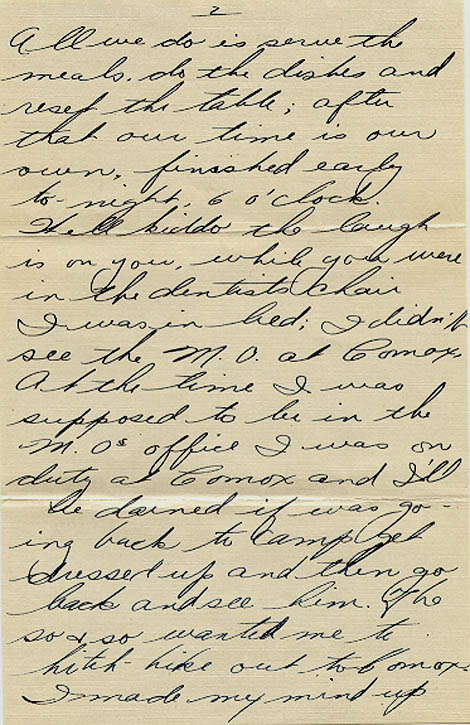 2
All we do is serve the
meals, do the dishes and
reset the table; after
that our time is our
own, finished early
to-night, 6 o'clock.
Well kiddo the laugh
is on you, while you were
in the dentists chair
I was in bed; I didn't
see the M.O. at Comox.
At the time I was
supposed to be in the
M.Os office I was on
duty at Comox and I'll
be darned if was go-
ing back to camp get
dressed up and then go
back and see him. The
so & so wanted me to
hitch-hike out to Comox.
I made my mind up